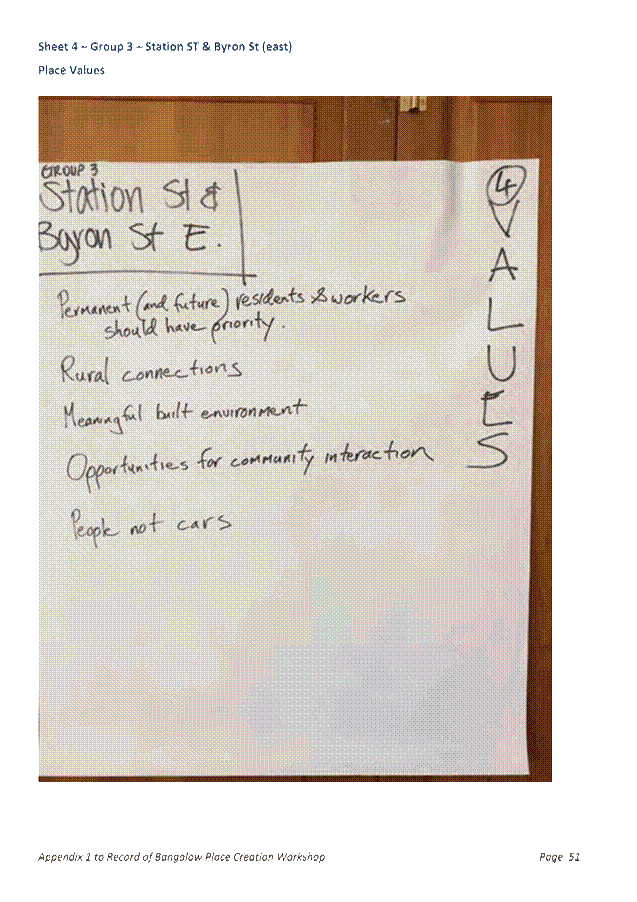 Sheet 4 ~ Group 3 ~ Station ST & Byron St (east)
Place Values
GROUP 3
Station St &
Byron St E.
4
VALUES
Permanent (and future) residents & workers
should have priority.
Rural connections
Meaningful built environment
Opportunities for community interaction
People not cars
Appendix 1 to Record of Bangalow Place Creation Workshop Page 51